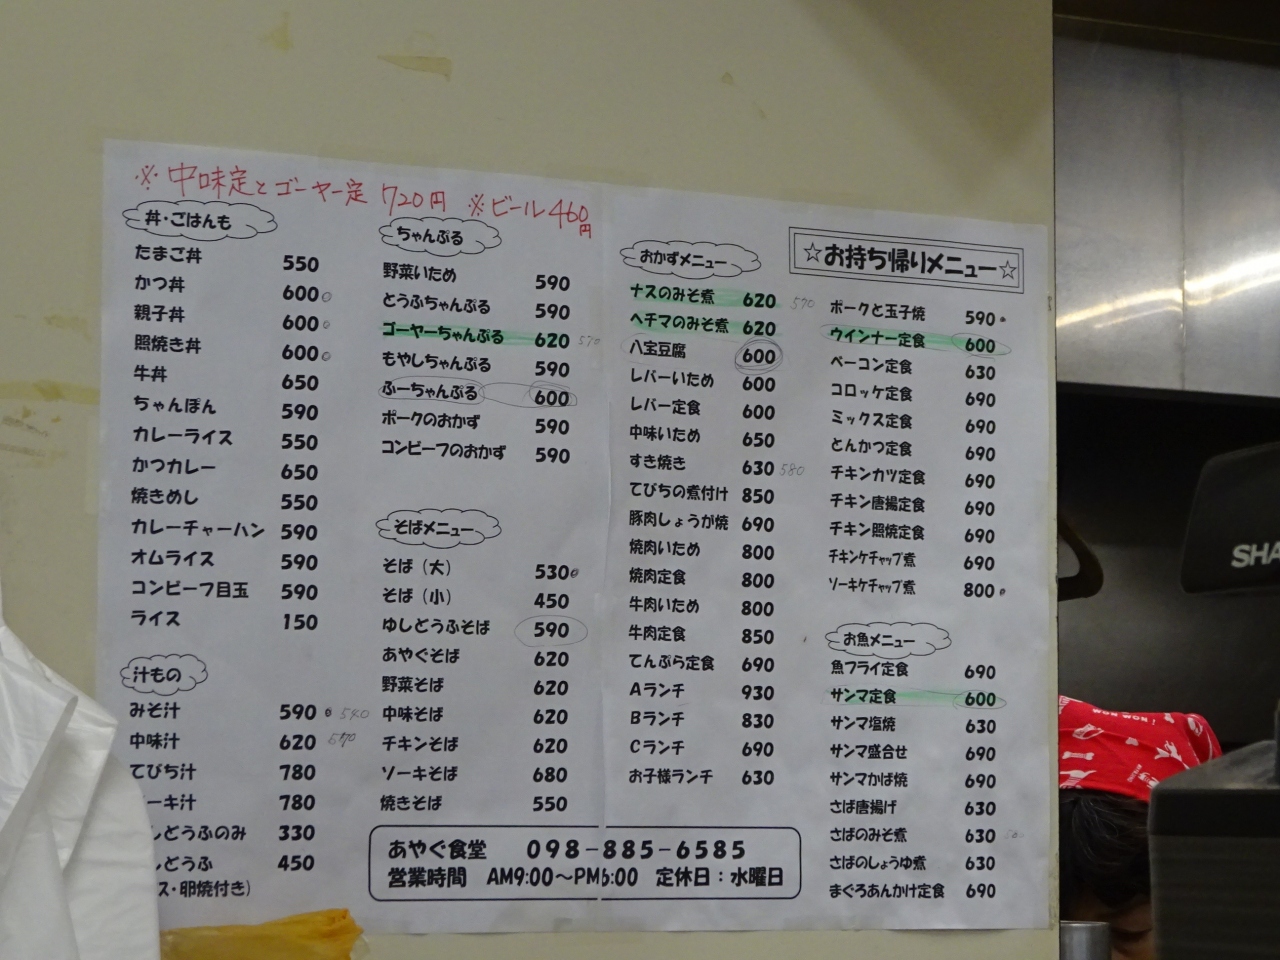 ※中味定とゴーヤー定 720円 ※ビール460円
丼・ごはんも
たまご丼 550
かつ丼 600
親子丼 600
照焼き丼 600
牛丼 650
ちゃんぽん 590
カレーライス 550
かつカレー 650
焼きめし 550
カレーチャーハン 590
オムライス 590
コンビーフ目玉 590
ライス 150
汁もの
みそ汁 590 540
中味汁 620 570
てびち汁 780
ーキ汁 780
しどうふのみ 330
しどうふ 450
ス・卵焼付き)
ちゃんぷる
野菜いため 590
とうふちゃんぷる 590
ゴーヤーちゃんぷる 620 570
もやしちゃんぷる 590
ふーちゃんぷる 600
ポークのおかず 590
コンビーフのおかず 590
そばメニュー
そば(大) 530
そば(小) 450
ゆしどうふそば 590
あやぐそば 620
野菜そば 620
中味そば 620
チキンそば 620
ソーキそば 680
焼きそば 550
おかずメニュー
ナスのみそ煮 620 570
ヘチマのみそ煮 620
八宝豆腐 600
レバーいため 600
レバー定食 600
中味いため 650
すき焼き 630 580
てびちの煮付け 850
豚肉しょうが焼 690
焼肉いため 800
焼肉定食 800
牛肉いため 800
牛肉定食 850
てんぷら定食 690
Aランチ 930
Bランチ 830
Cランチ 690
お子様ランチ 630
☆お持ち帰りメニュー☆
ポークと玉子焼 590
ウインナー定食 600
ベーコン定食 630
コロッケ定食 690
ミックス定食 690
とんかつ定食 690
チキンカツ定食 690
チキン唐揚定食 690
チキン照焼定食 690
チキンケチャップ煮 690
ソーキケチャップ煮 800
お魚メニュー
魚フライ定食 690
サンマ定食 600
サンマ塩焼 630
サンマ盛合せ 690
サンマかば焼 690
さば唐揚げ 630
さばのみそ煮 630
さばのしょうゆ煮 630
まぐろあんかけ定食 690
あやぐ食堂 098-885-6585
営業時間 AM9:00〜PM6:00 定休日:水曜日
SHA
WON WON!